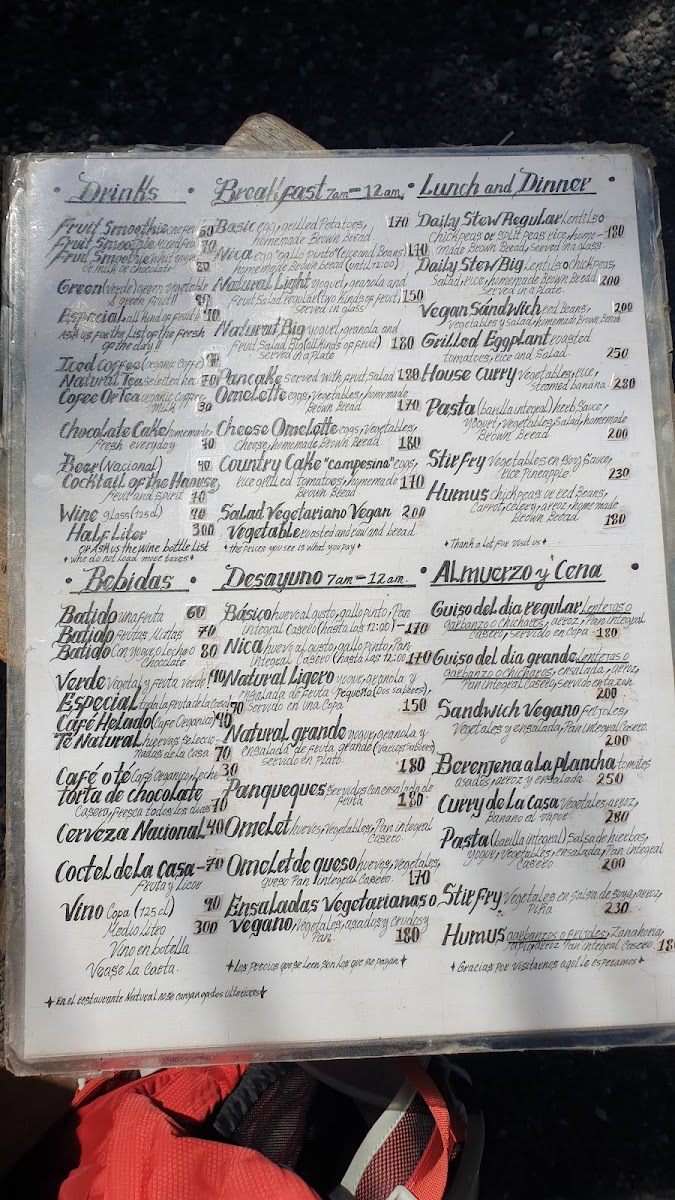 • Drinks •
Fruit Smoothie one fruit 60
Fruit Smoothie Mixed fruit 70
Fruit Smoothie what yogurt
or milk or chocolate 80
Green (verde) green vegetable
& green fruit!! 90
Especial all kind of fruit!! 90
Ask us for the list of the fresh
of the day!!
Iced Coffee (organic coffe) 90
Natural Tea selected hea 70
Cofee Or Tea organic coffee
milk 30
Chocolate Cake homemade
fresh everyday 70
Beer (Nacional) 40
Cocktail of the House,
fruit and spirit 70
Wine glass (125cl) 90
Half Liter 300
or Ask us the wine bottle List
• who do not load more taxes •
Breakfast 7am - 12am. •
Basic egg, grilled Potatoes, 170
homemade Brown Bread
Nica egg "gallo pinto" (rice and Beans) 170
homemade Brown bread (until 12:00)
Natural Light yogurt, granola and
fruit Salad Regular (two kinds of fruit) 150
served in glass
Natural Big yogurt, granola and
fruit Salad Big (all kinds of fruit) 180
served in a plate
Pancake served with fruit Salad 180
Omelette eggs, Vegetables, homemade
Brown Bread 170
Cheese Omelette eggs, Vegetables,
cheese, homemade Brown Bread 180
Country Cake "campesina" eggs,
rice grilled tomatoes, homemade 170
Brown Bread
Salad Vegetariano Vegan 200
Vegetable roasted and raw and bread
• the prices you see is what you pay •
Lunch and Dinner •
Daily Stew Regular Lentils o
chickpeas or split peas rice, home- 180
made Brown Bread, served in a glass
Daily Stew Big Lentils o chickpeas,
Salad, rice, homemade Brown Bread 200
Served in a Plate
Vegan Sándwich red Beans, 200
vegetables y salad, homemade Brown Bread
Grilled Eggplant roasted
tomatoes, rice and Salad 250
House Curry vegetables, rice,
steamed banana 280
Pasta (barilla integral) herb, Sauce,
yogurt, vegetables, Salad, homemade
Brown Bread 200
Stir Fry Vegetables en Soy Sauce,
rice pineapple 230
Humus chickpeas or red Beans,
Carrot, celery, arroz, home made
Brown Bread 180
• Thank a lot for visit us •
• Bebidas •
Batido una fruta 60
Batido frutas Mixtas 70
Batido Con yogur o Leche o 80
Chocolate
Verde Vegetal y fruta verde! 90
Especial toda la fruta de la Casa 90
Café Helado (Café Organico) 90
Té Natural huervas selecio-
nadas de la casa 70
Café o té Café Organico, Leche 30
torta de chocolate
Casera, Fresca todos los dias 70
Cerveza Nacional 40
Coctel de la Casa - 70
fruta y Licor
Vino Copa (125cl) 90
Medio Litro 300
Vino en botella
Vease la Carta.
Desayuno 7am - 12am. •
Básico huevo al gusto, gallo pinto, Pan
integral Casero (hasta las 12:00) - 170
Nica huevo al gusto, gallo pinto, Pan
integral Casero (hasta las 12:00 170
Natural Ligero yogur, granola y
ensalada de fruta pequeña (Dos sabores),
servido en una Copa 150
Natural grande yogur, granola y
ensalada de fruta grande (varios sabores)
servido en Plato. 180
Panqueques servidos con ensalada de
fruta 180
Omelet huevos, Vegetables, Pan integral
Casero.
Omelet de queso huevos, Vegetales,
queso Pan integral Casero. 170
Ensaladas Vegetarianas o
Vegano, Vegetales, asados y crudos y
Pan 180
• Los precios que se leen son los que se pagan •
ALmuerzo y Cena •
Guiso del dia regular Lentejas o
garbanzo o chicharos, arroz, Pan integral
Casero, servido en Copa 180
Guiso del dia grande Lentejas o
garbanzo o chicharos, ensalada, arroz,
Pan integral Casero, servido en tazon.
200
Sandwich Vegano frijoles,
Vegetales y ensalada, Pan integral Casero.
200
Berenjena a la plancha tomates
asados, arroz y ensalada 250
Curry de la Casa Vegetales, arroz,
banano al vapor 280
Pasta (barilla integral) Salsa de hierbas,
yogur, vegetables, ensalada, Pan integral
Casero 200
Stir Fry Vegetales en salsa de soya, arroz,
Piña 230
Humus garbanzos o frijoles, Zanahoria,
apio, arroz Pan integral Casero. 180
• Gracias por visitarnos aqui le esperamos •
• En el restaurante Natural no se cargan gastos ulteriores •